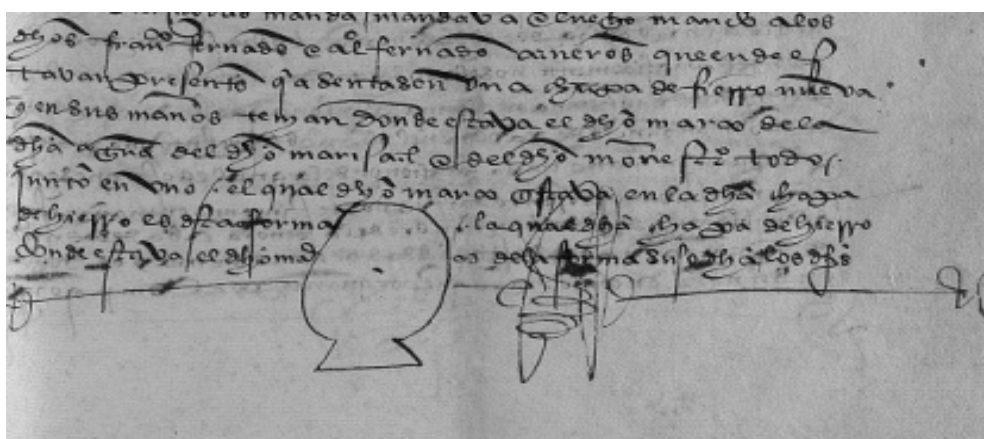 manda mandava e luego marco a los
dhos fran^o fernado e al^o fernado arneros que ende es
tavan presentes una chapa de fierro nueva
q en sus manos tenian donde estava el dho marco de la
dha agua del dho marisal e del dho mone^ft^o todo
junto en uno el qual dho marco estava en la dha chapa
de hierro es desta forma la qual dha chapa de hierro
donde estava el dho ma co de la forma suso dha los dhos